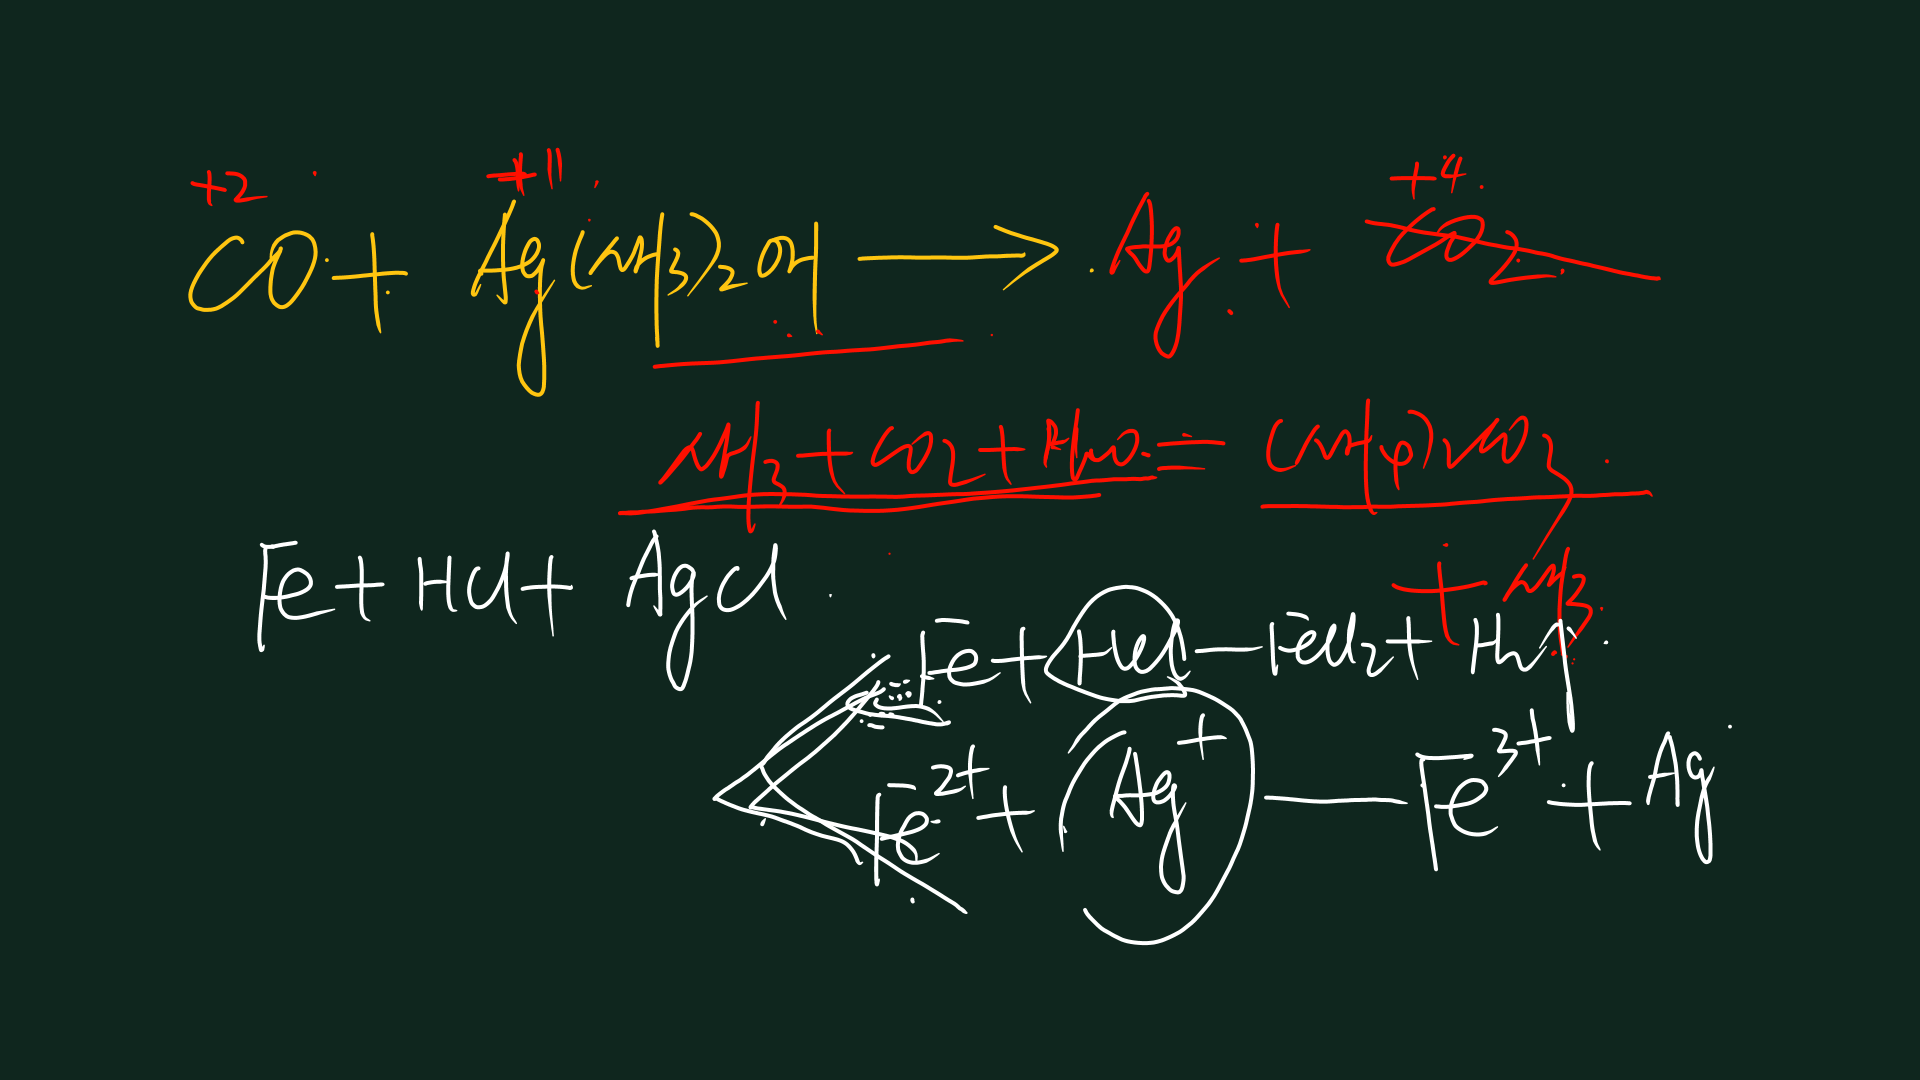 +2 +1 +4
CO + Ag(NH3)2OH → Ag + CO2
NH3 + CO2 + H2O = (NH4)2CO3
+ NH3
Fe + HCl + AgCl
Fe + HCl — FeCl2 + H2
Fe2+ + Ag+ — Fe3+ + Ag